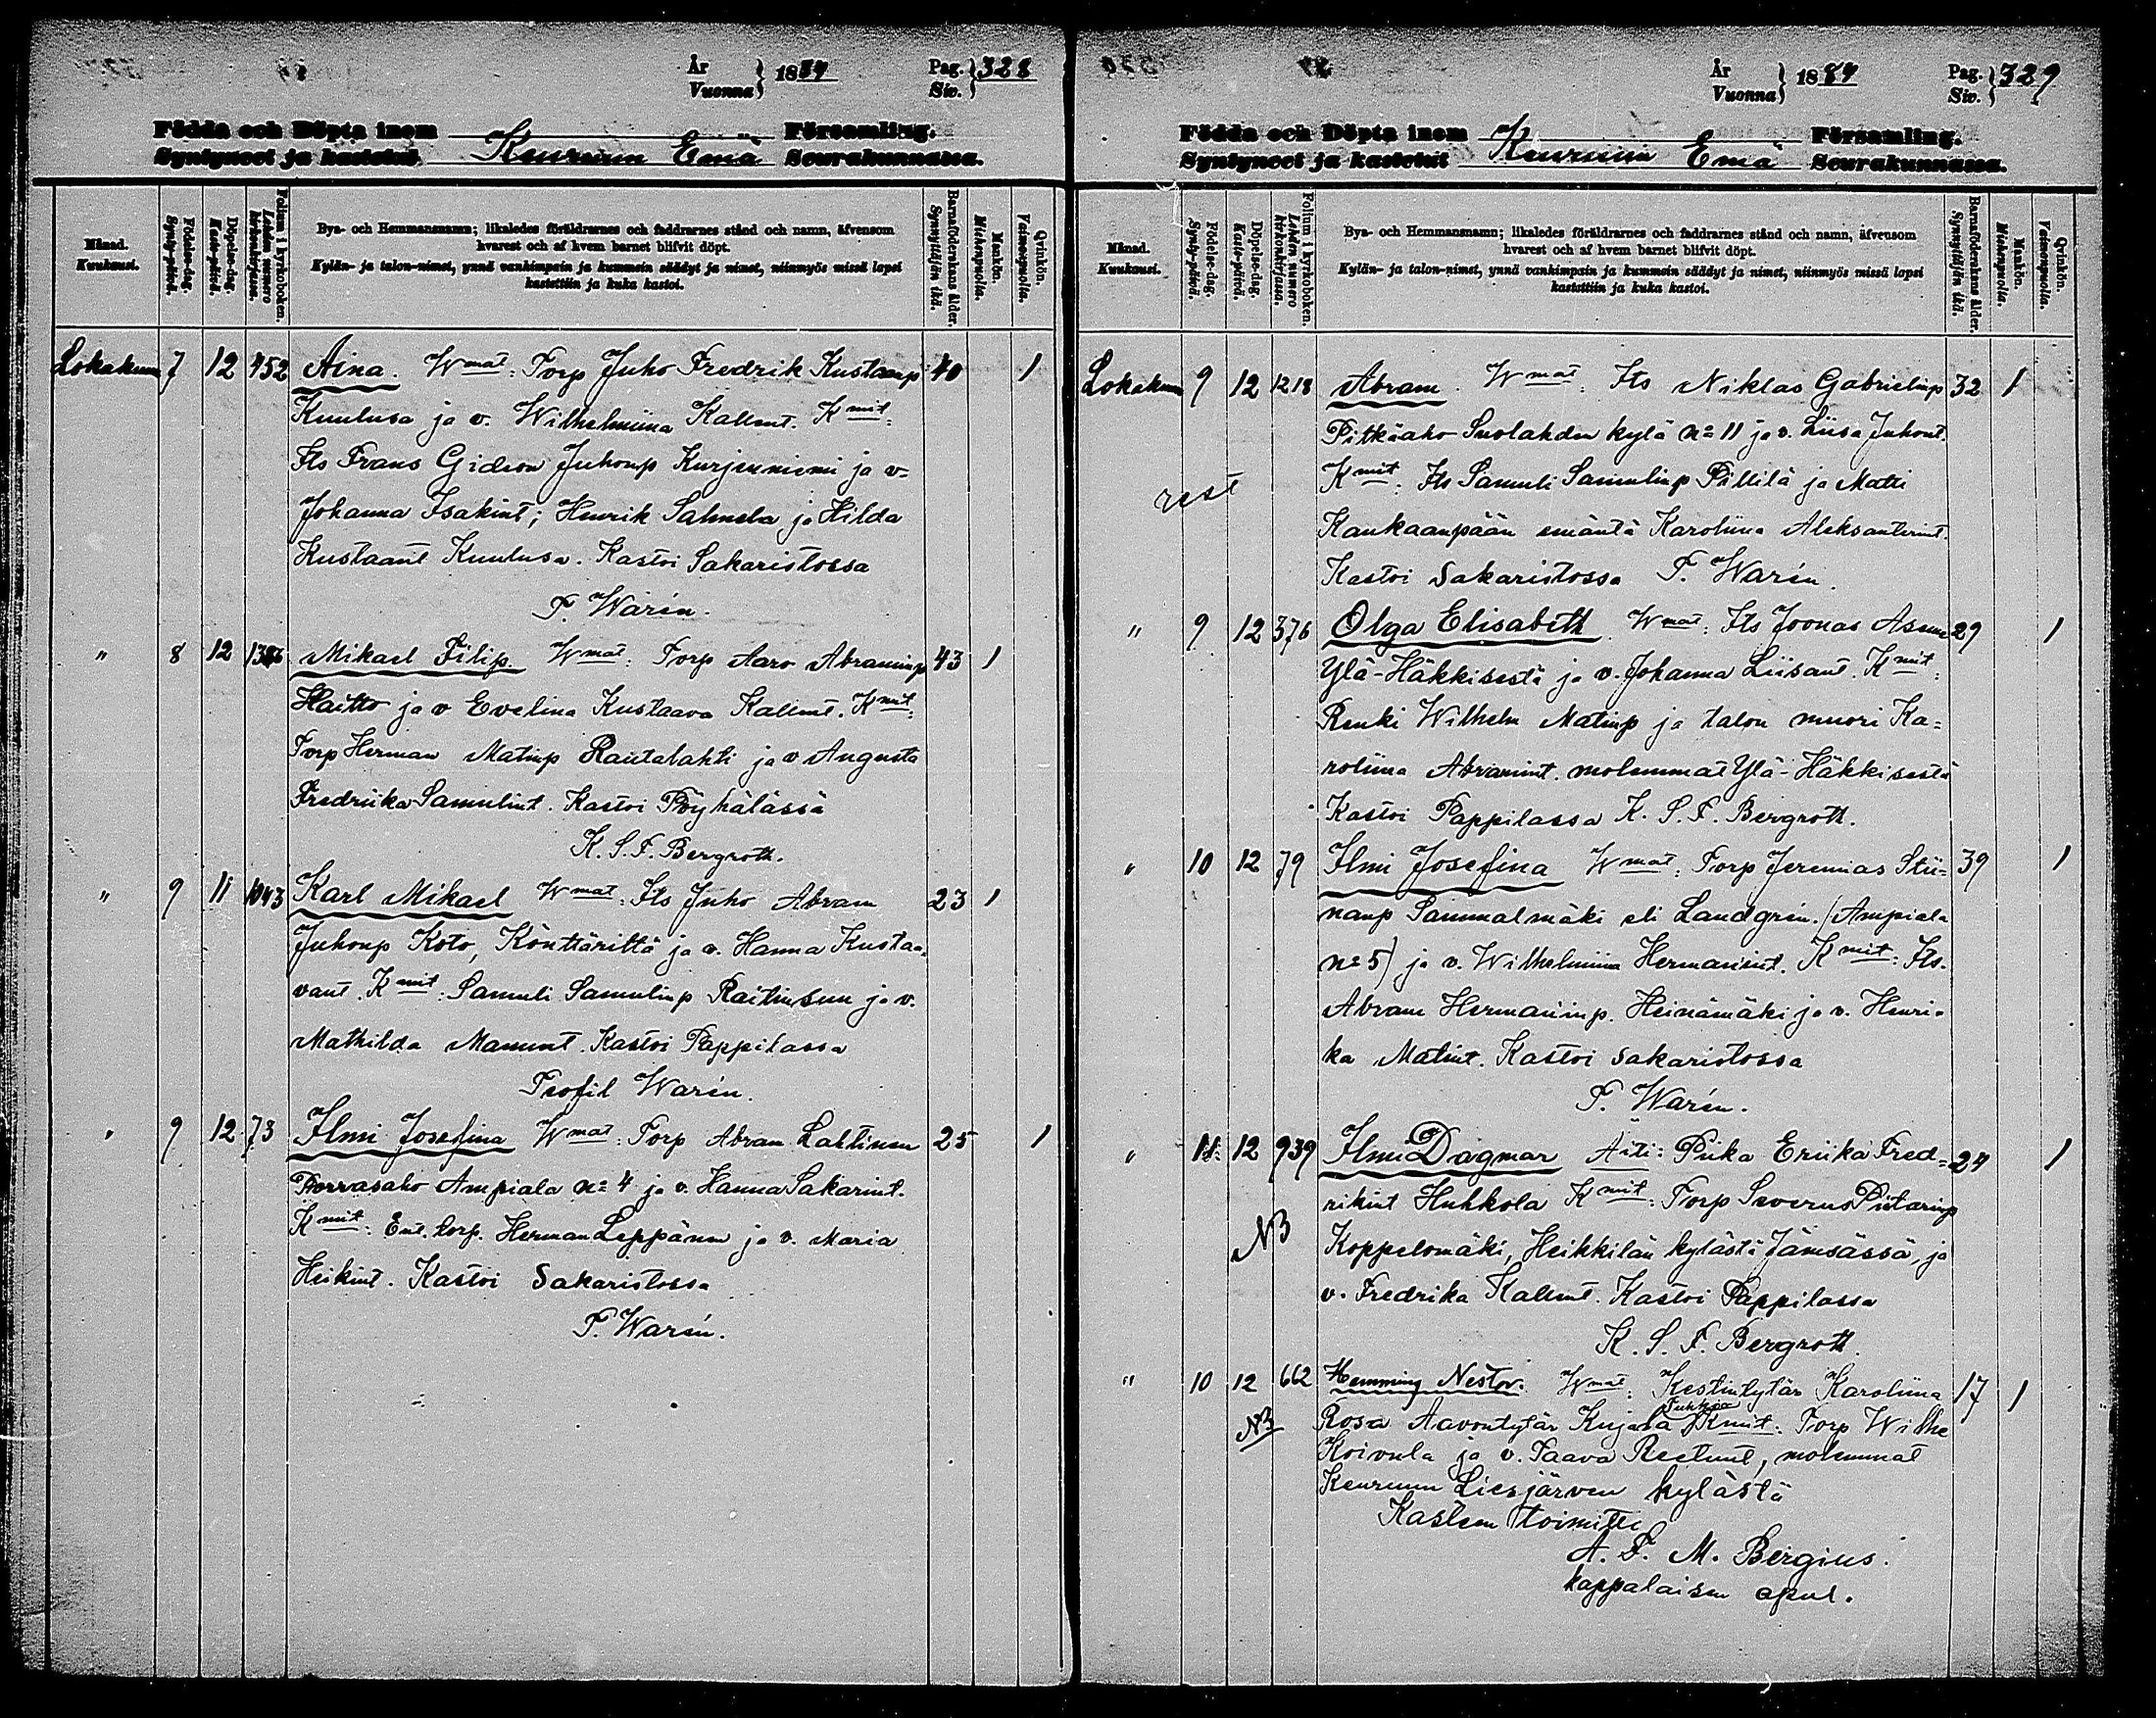 År
Vuonna } 1884
Pag.
Siv. } 328
Födda och Döpta inom Församling.
Syntyneet ja kastetut Keuruun Emä Seurakunnassa.
Månad.
Kuukausi.
Födelse-dag.
Synty-päivä.
Döpelse-dag.
Kaste-päivä.
Folium i kyrkoboken.
Lehden numero kirkonkirjassa.
Bya- och Hemmansnamn; likaledes föräldrarnes och faddrarnes stånd och namn, äfvensom
hvarest och af hvem barnet blifvit döpt.
Kylän- ja talon-nimet, ynnä vanhimpain ja kummein säädyt ja nimet, niinmyös missä lapsi
kastettiin ja kuka kastoi.
Barnaföderskans ålder.
Synnyttäjän ikä.
Mankön.
Miehenpuolia.
Qvinkön.
Vaimonpuolia.
Lokakuu 7 12 452 Aina. Wmat: Torp Juho Fredrik Kustaanp 40 1
Kuulusa ja v. Wilhelmiina Kallent. Kmit:
Its Frans Gideon Juhonp Kurjenniemi ja v.
Johanna Isakint; Henrik Salmela ja Hilda
Kustaant Kuulusa. Kastoi Sakaristossa
T. Warén.
" 8 12 Mikael Filip. Wmat: Torp Aaro Abraminp 43 1
Haitto ja v Evelina Kustaava Kallent. Kmit:
Torp Herman Matinp Rautalahti ja v Augusta
Fredriika Samulint. Kastoi Pöyhälässä
K. S. F. Bergroth.
" 9 11 1043 Karl Mikael Wmat: Its Juho Abram 23 1
Juhonp Koto, Könttäriltä ja v. Hanna Kustaa-
vant. Kmit: Samuli Samulinp Raitinsuu ja v.
Mathilda Manunt. Kastoi Pappilassa
Teofil Warén.
" 9 12 73 Ilmi Josefina Wmat: Torp Abram Lahtinen 25 1
Torvasaho Ampiala n=4 ja v. Hanna Sakarint.
Kmit: Ent. torp. Herman Leppänen ja v. Maria
Heikint. Kastoi Sakaristossa
T. Warén.
År
Vuonna } 1884
Pag.
Siv. } 329
Födda och Döpta inom Församling.
Syntyneet ja kastetut Keuruun Emä Seurakunnassa.
Månad.
Kuukausi.
Födelse-dag.
Synty-päivä.
Döpelse-dag.
Kaste-päivä.
Folium i kyrkoboken.
Lehden numero kirkonkirjassa.
Bya- och Hemmansnamn; likaledes föräldrarnes och faddrarnes stånd och namn, äfvensom
hvarest och af hvem barnet blifvit döpt.
Kylän- ja talon-nimet, ynnä vanhimpain ja kummein säädyt ja nimet, niinmyös missä lapsi
kastettiin ja kuka kastoi.
Barnaföderskans ålder.
Synnyttäjän ikä.
Mankön.
Miehenpuolia.
Qvinkön.
Vaimonpuolia.
Lokakuu 9 12 1218 Abram. Wmat: Its Niklas Gabrielinp 32 1
Pitkäaho Suolahden kylä n=11 ja v. Liisa Juhont.
rest Kmit: Its Samuli Samulinp Pillilä ja Matti
Kankaanpään emäntä Karoliina Aleksanterint.
Kastoi Sakaristossa T. Warén.
" 9 12 376 Olga Elisabeth. Wmat: Its Joonas Asun 29 1
Ylä-Häkkisestä ja v. Johanna Liisant. Kmit:
Renki Wilhelm Matinp ja talon muori Ka=
roliina Abramint. molemmat Ylä-Häkkisestä
Kastoi Pappilassa K. S. F. Bergroth.
" 10 12 79 Ilmi Josefina Wmat: Torp Jeremias Stii= 39 1
nanp Sammalmäki eli Landgrén. (Ampiala
n=5) ja v. Wilhelmiina Hermanint. Kmit: Its.
Abram Hermaninp. Heinämäki ja v. Henri=
ka Matint. Kastoi Sakaristossa
T. Warén.
" 11 12 939 Ilmi Dagmar Äiti: Piika Eriika Fred= 24 1
rikint Huhkola Kmit: Torp Severus Pietarinp
NB Koppelomäki, Heikkilän kylästä Jämsässä, ja
v. Fredrika Kallent. Kastoi Pappilassa
K. S. F. Bergroth.
" 10 12 662 Hemming Nestor. Wmat: Kestintytär Karoliina 17 1
NB Rosa Aavontytär Kujala Kmit: Torp Wilhe
Koivula ja v. Taava Reetunt, molemmat
Keuruun Liesjärven kylästä
Kasteen toimitti
A. F. M. Bergius.
kappalaisen apul.